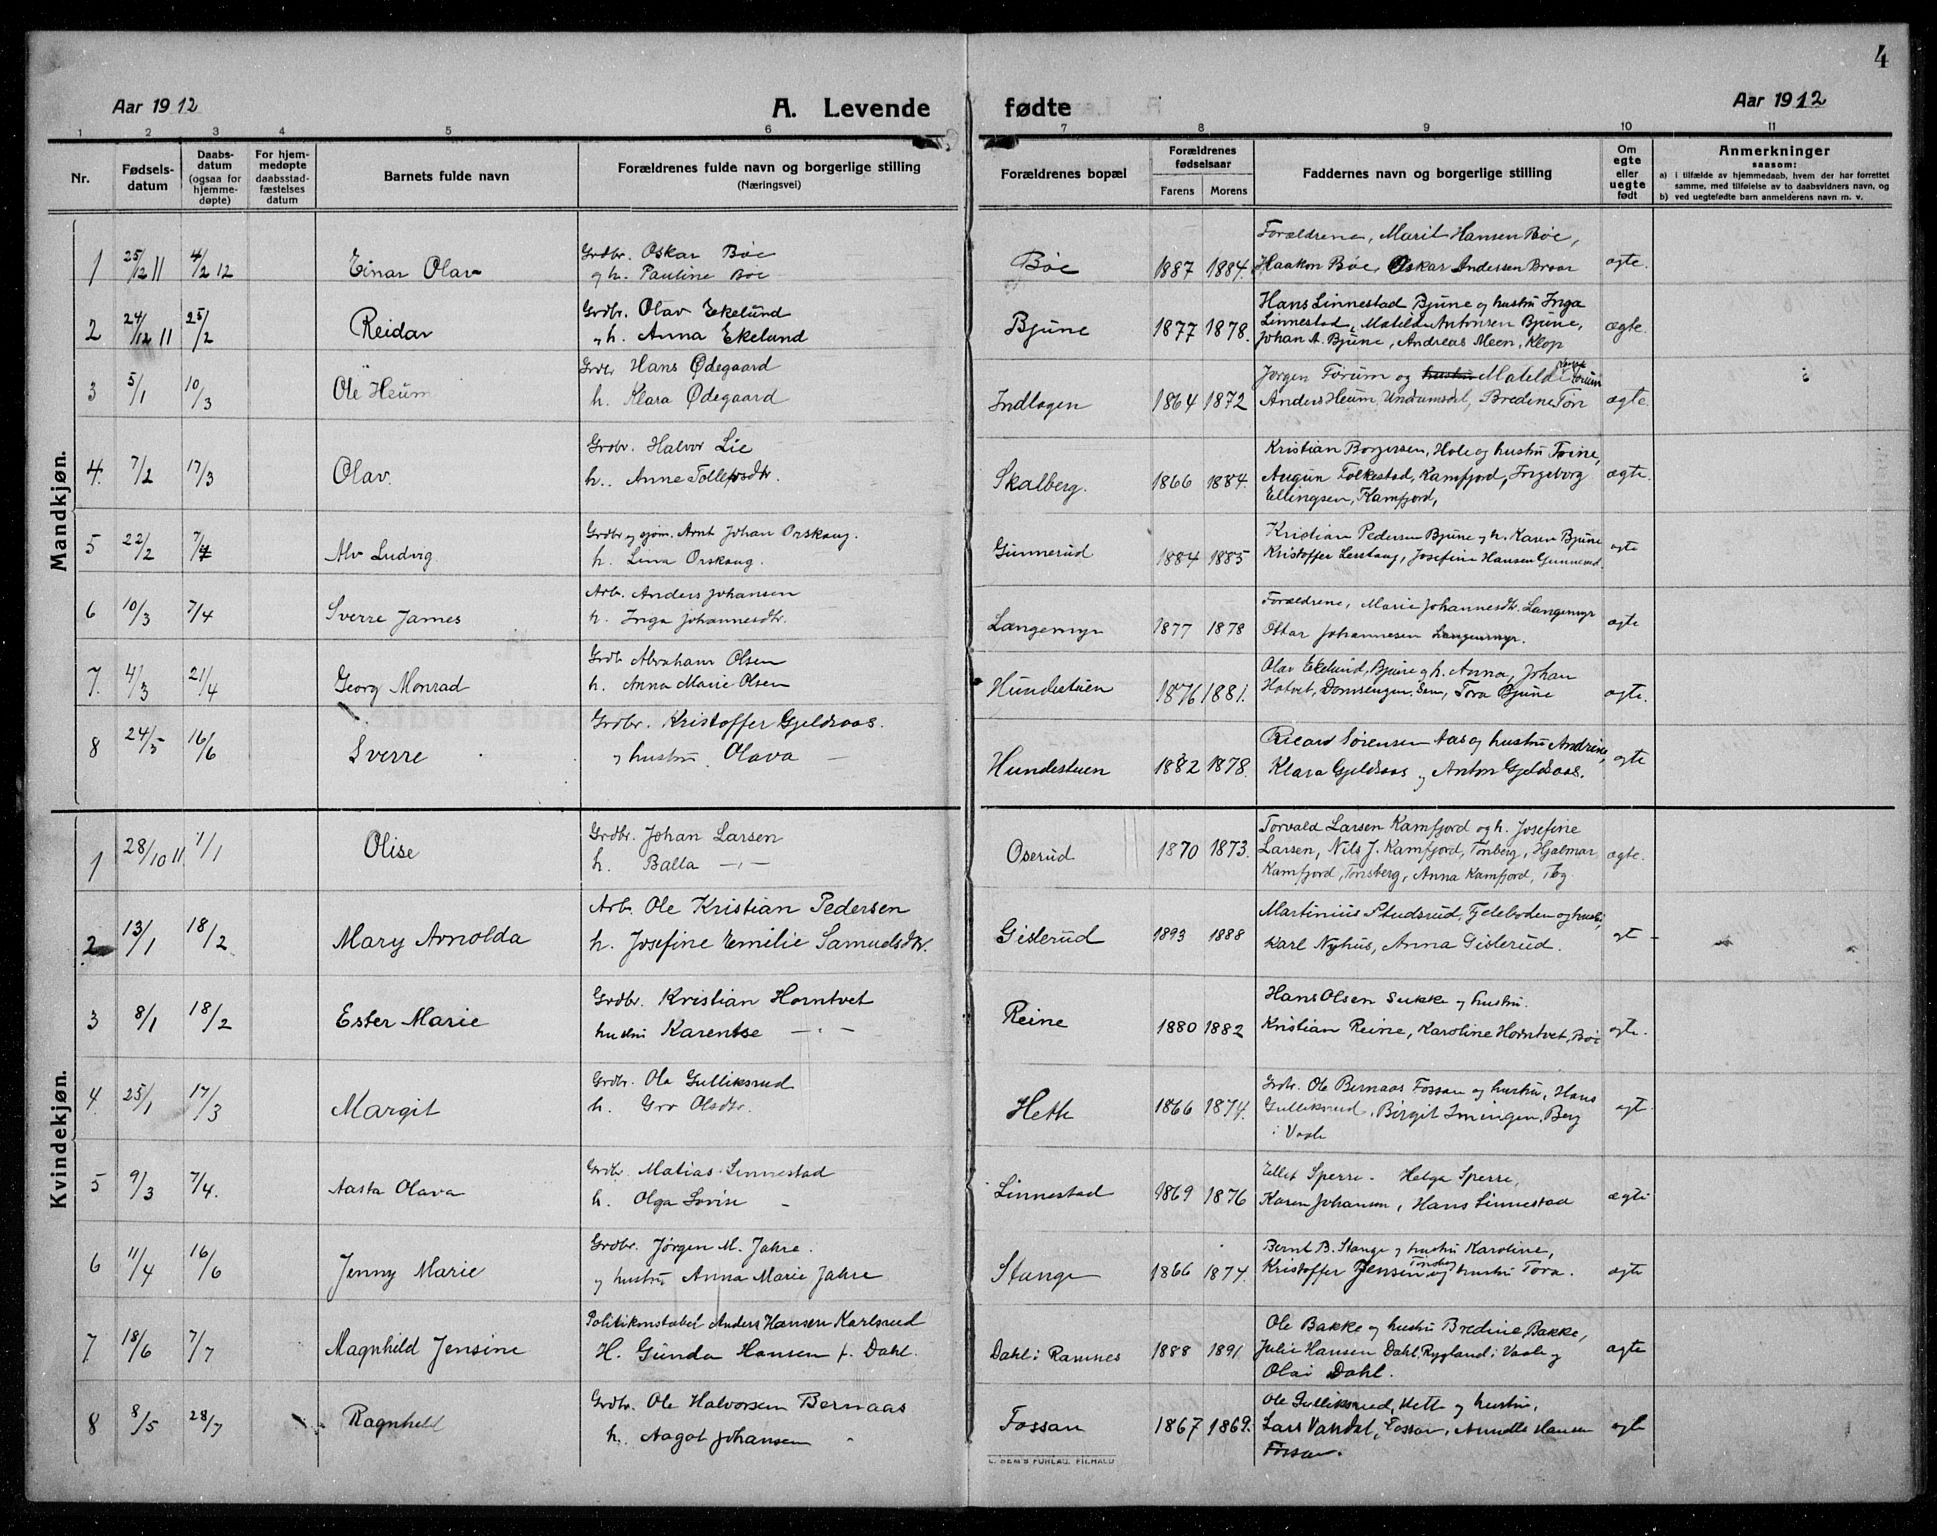 4
Aar 1912 A. Levende fødte Aar 1912
1 2 3 4 5 6 7 8 9 10 11
Nr.
Fødsels-
datum
Daabs-
datum
(ogsaa for
hjemme-
døpte)
For hjem-
medøpte
daabsstad-
fæstelses
datum
Barnets fulde navn
Forældrenes fulde navn og borgerlige stilling
(Næringsvei)
Forældrenes bopæl
Forældrenes
fødselsaar
Farens Morens
Faddernes navn og borgerlige stilling
Om
egte
eller
uegte
født
Anmerkninger
saasom:
a) i tilfælde av hjemmedaab, hvem der har forrettet
samme, med tilføielse av to daabsvidners navn, og
b) ved uegtefødte barn anmelderens navn m. v.
Mandkjøn.
1 25/12 11 4/2 12 Einar Olav
Grdbr. Oskar Bøe
og h. Pauline Bøe
Bøe 1887 1884.
Forældrene, Marit Hansen Bøe,
Haakon Bøe, Oskar Andersen Braar
egte.
2 24/12 11 25/2 Reidar
Grdbr. Olav Ekelund
" h. Anna Ekelund
Bjune 1877 1878.
Hans Linnestad, Bjune og hustru Inga
Linnestad, Matilde Antonsen Bjune,
Johan A. Bjune, Andreas Meen, Klop
ægte.
3 5/1 10/3 Ole Heum
Grdbr Hans Ødegaard
h. Klara Ødegaard
Indlagen 1864 1872
Jørgen Forum og hustru Matilde Forum
Anders Heum, Undrumsdal, Bredine Føn
ægte.
4. 7/2 17/3 Olav.
Grdbr. Halvor Lie
h. Anne Tollefsdtr.
Skalberg. 1866 1884.
Kristian Borgersen, Hole og hustru Trine,
Augun Folkestad, Kamfjord, Ingeborg
Ellingsen, Kamfjord,
ægte.
5 22/2 7/4 Alv Ludvig
Grdbr og sjøm. Arnt Johan Orskaug.
h. Lina Orskaug.
Gunnerud 1884 1885
Kristian Pedersen Bjune og h. Karen Bjune
Kristoffer Lerskaug, Josefine Hansen Gunnerud.
egte
6 10/3 7/4 Sverre James
Arb. Anders Johansen
h. Inga Johannesdtr.
Langemyr 1877 1878
Forældrene, Marie Johannesdtr. Langemyr
Ottar Johannesen Langemyr.
ægte
7. 4/3 21/4 Georg Monrad
Grdb Abraham Olsen
h. Anna Marie Olsen
Hundestuen 1876 1881.
Olav Ekelund, Bjune og h. Anna, Johan
Hotvet, Domsengen, Sem, Tora Bjune
egte.
8 24/5 16/6 Sverre
Grdbr. Kristoffer Gjeldsaas.
og hustru Olava —
Hundestuen 1882 1878
Ricard Sørensen Aas og hustru Andrine,
Klara Gjeldsaas og Anton Gjeldsaas.
egte
Kvindekjøn.
1 28/10 11 1/1 Olise
Grdbr. Johan Larsen
h. Balla —"—
Oserud 1870 1873.
Torvald Larsen Kamfjord og h. Josefine
Larsen, Nils J. Kamfjord, Tønberg, Hjalmar
Kamfjord, Tønsberg, Anna Kamfjord, Tbg
ægte.
2 13/1 18/2 Mary Arnolda
Arb. Ole Kristian Pedersen
h. Josefine Emilie Samuelsdtr.
Gislerud 1893 1888
Martinius Studsrud, Fjeleboden og hustru,
Karl Nyhus, Anna Gislerud.
egt —
3 8/1 18/2 Ester Marie
Grdbr. Kristian Horntvet
hustru Karentse —"—
Reine 1880 1882
Hans Olsen Sukke og hustru.
Kristian Reine, Karoline Horntvet, Bøe
egte.
4. 25/1 17/3 Margit
Grdbr. Ola Gulliksrud
h. Gro Olsdtr.
Heth 1866 1874.
Grdbr. Ole Bernaas Fossan og hustru, Hans
Gulliksrud, Birgit Imingen, Berg
i Vaale
egt.
5 9/3 7/4. Aasta Olava
Grdbr. Matias Linnestad
h. Olga Lovise —
Linnestad 1869 1876
Ellef Sperre. Helga Sperre,
Karen Johansen, Hans Linnestad
ægte
6 11/4 16/6 Jenny Marie
Grdbr. Jørgen M. Jahre.
og hustru Anna Marie Jahre
Stange 1866 1874.
Bernt B. Stange og hustru Karoline,
Kristoffer Jensen Tønsberg og hustru Tora.
egte
7 18/6 7/7 Magnhild Jensine
Politikonstabel Anders Hansen Karlsrud
H. Gunda Hansen f. Dahl.
Dahl i Ramnes 1888 1891
Ole Bakke og hustru Bredine Bakke,
Julie Hansen Dahl, Rygland i Vaale og
Olai Dahl.
egte
8 8/5 28/7 Ragnhild
Grdbr. Ole Halvorsen Bernaas
h. Aagot Johansen
Fossan 1867 1869.
Ole Gulliksrud, Hette og hustru,
Lars Vandal, Fossan, Hansen
Fossan.
egte
C. SEM'S FORLAG. FR.HALD